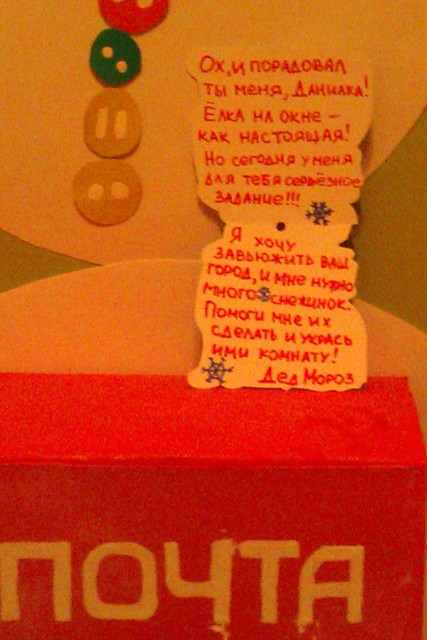 Ох, и порадовал
ты меня, Данилка!
Ёлка на окне –
как настоящая!
Но сегодня у меня
для тебя серьёзное
задание!!!
Я хочу
завьюжить ваш
город, и мне нужно
много снежинок.
Помоги мне их
сделать и укрась
ими комнату!
Дед Мороз
ПОЧТА